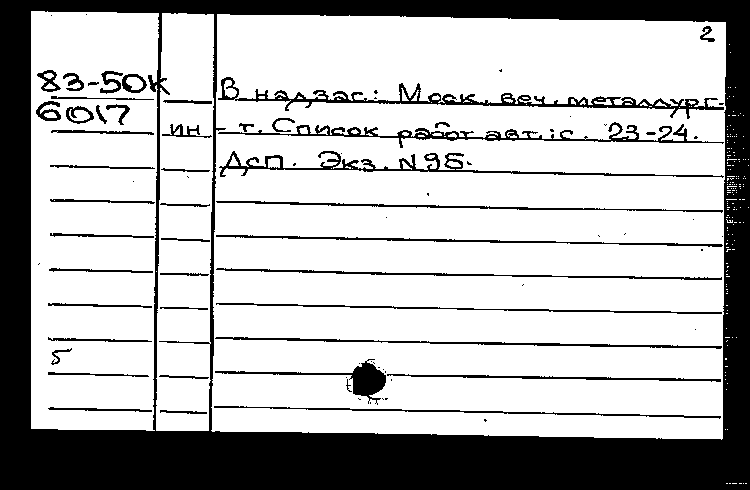 2
83-50К В надзаг.: Моск. веч. металлург.
6017 ин-т. Список работ авт.: с. 23-24.
Дсп. Экз. N95.
5